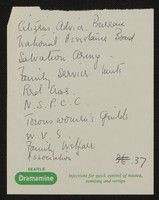 Citizens Advice Bureau
National Assistance Board
Salvation Army
Family Service Units
Red Cross
N.S.P.C.C
Townswomen's Guilds
W.V.S.
Family Welfare
Association
37
SEARLE
Dramamine
Injections for quick control of nausea,
vomiting and vertigo